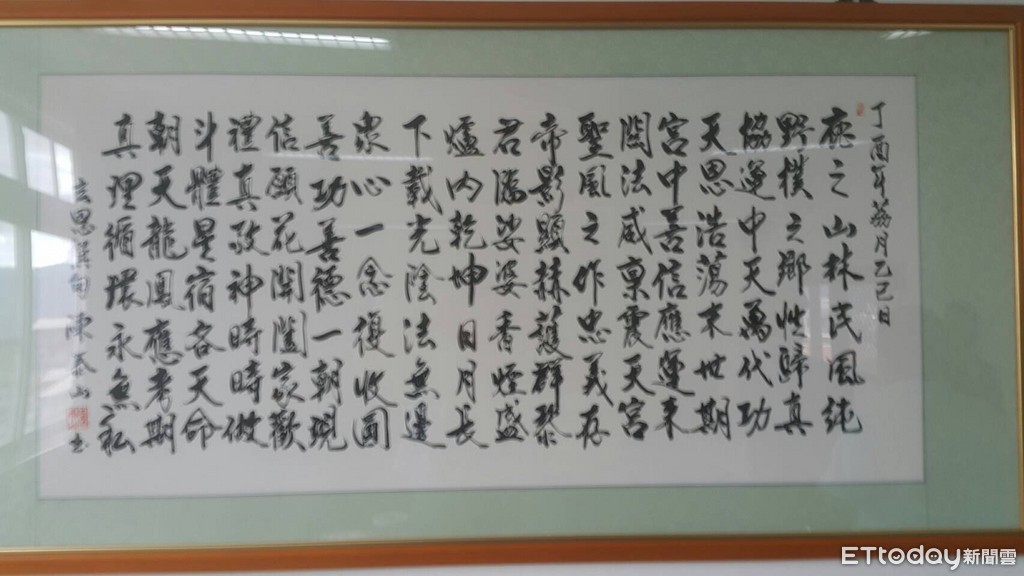 丁酉年荔月乙己日
鹿之山林民風純
野樸之鄉性歸真
協運中天萬代功
天恩浩蕩末世期
宮中善信應運來
關法威稟震天宮
聖風之作忠義存
帝影顯赫護群黎
君臨娑婆香煙盛
爐內乾坤日月長
下載光陰法無邊
眾心一念復收圓
善功善德一朝現
信願花開闔家歡
禮真敬神時時傚
斗體星宿各天命
朝天龍鳳應考期
真理循環永無私
玄思撰句 陳泰山 書
ETtoday新聞雲